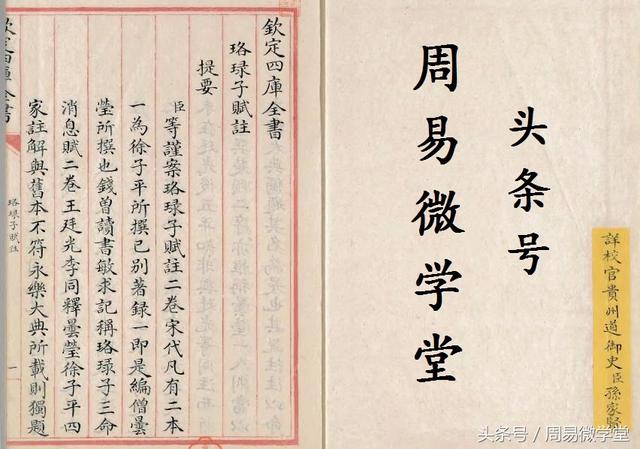 欽定四庫全書
珞琭子賦註
提要
臣等謹案珞琭子賦註二卷宋代凡有二本
一為徐子平所撰已别著録一即是編僧曇
瑩所撰也錢曾讀書敏求記稱珞琭子三命
消息賦二卷王廷光李同釋曇瑩徐子平四
家註解與舊本不符永樂大典所載則獨題
欽定四庫全書
珞琭子賦註
一
头条号
周易微学堂
詳校官貴州道御史臣孫家賢
头条号/周易微学堂